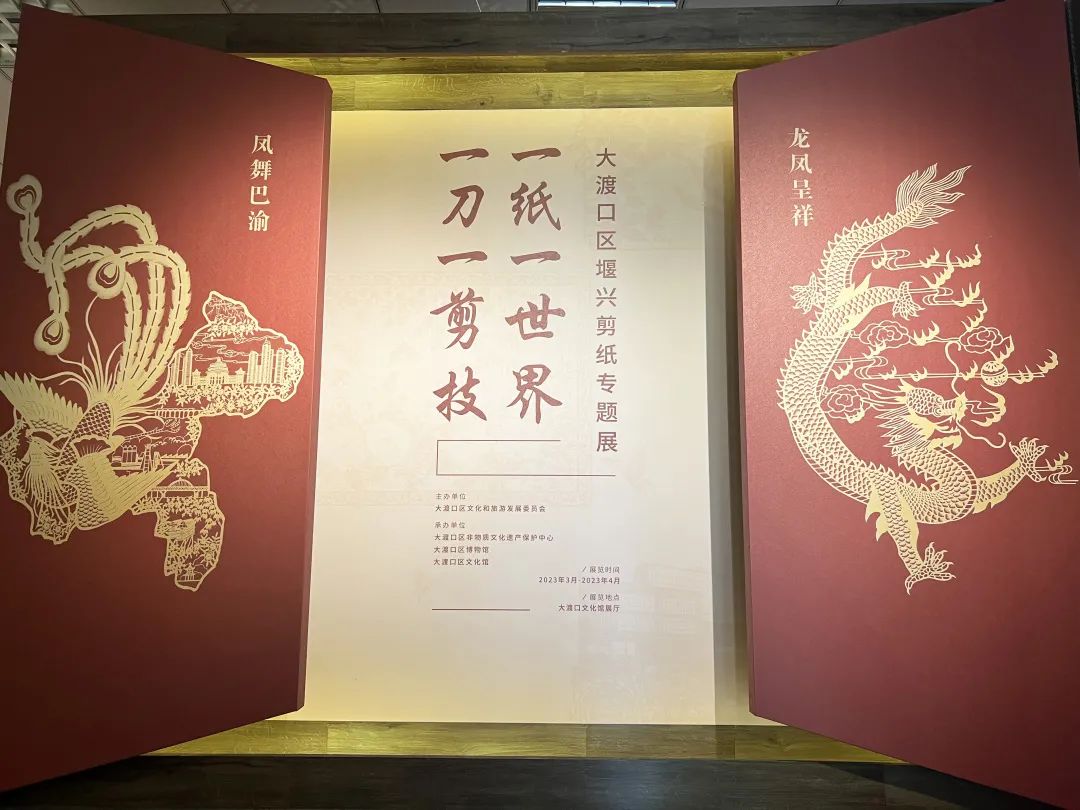 凤舞巴渝
大渡口区堰兴剪纸专题展
一纸一世界
一刀一剪技
主办单位
大渡口区文化和旅游发展委员会
承办单位
大渡口区非物质文化遗产保护中心
大渡口区博物馆
大渡口区文化馆
/ 展览时间
2023年3月-2023年4月
/ 展览地点
大渡口文化馆展厅
龙凤呈祥